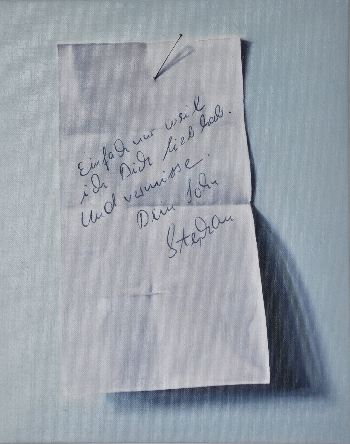 Einfach nur weil
ich Dich lieb hab.
Und vermisse.
Dein Sohn
Stephan